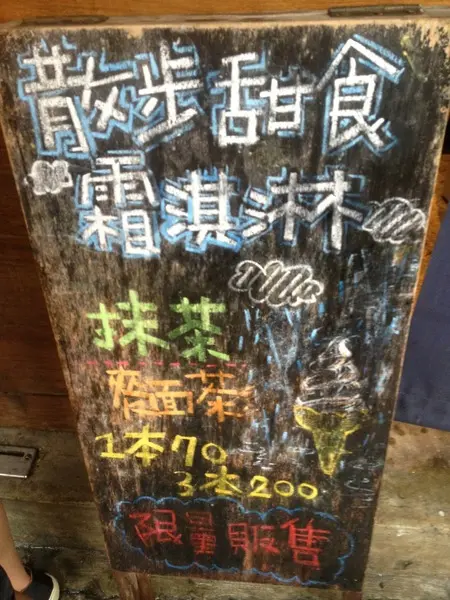 散步甜食
霜淇淋
抹茶
麵茶
1本70
3本200
限量販售